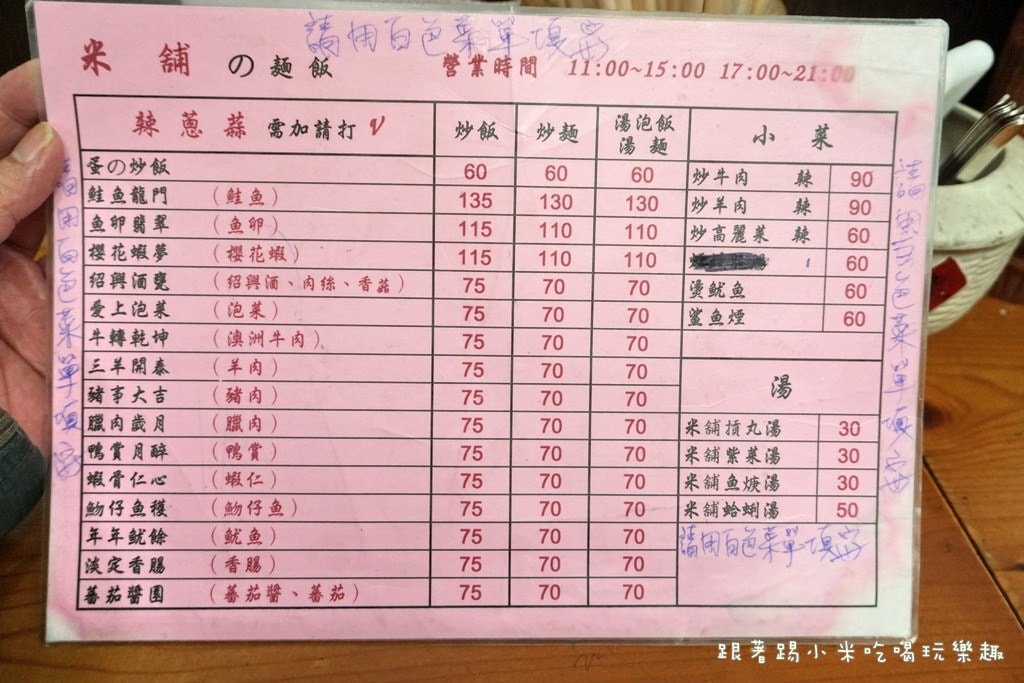 請用白色菜單填寫
米舖の麵飯 營業時間 11:00~15:00 17:00~21:00
辣蔥蒜 需加請打 V 炒飯 炒麵 湯泡飯 湯麵
蛋の炒飯 60 60 60
鮭魚龍門 （鮭魚） 135 130 130
魚卵翡翠 （魚卵） 115 110 110
櫻花蝦夢 （櫻花蝦） 115 110 110
紹興酒甕 （紹興酒、肉絲、香菇） 75 70 70
愛上泡菜 （泡菜） 75 70 70
牛轉乾坤 （澳洲牛肉） 75 70 70
三羊開泰 （羊肉） 75 70 70
豬事大吉 （豬肉） 75 70 70
臘肉歲月 （臘肉） 75 70 70
鴨賞月醉 （鴨賞） 75 70 70
蝦骨仁心 （蝦仁） 75 70 70
魩仔魚穫 （魩仔魚） 75 70 70
年年魷餘 （魷魚） 75 70 70
淡定香腸 （香腸） 75 70 70
蕃茄醬園 （蕃茄醬、蕃茄） 75 70 70
小菜
炒牛肉 辣 90
炒羊肉 辣 90
炒高麗菜 辣 60
60
燙魷魚 60
鯊魚煙 60
湯
米舖摃丸湯 30
米舖紫菜湯 30
米舖魚焿湯 30
米舖蛤蜊湯 50
請用白色菜單填寫
請用白色菜單填寫
請用白色菜單填寫
跟著踢小米吃喝玩樂趣